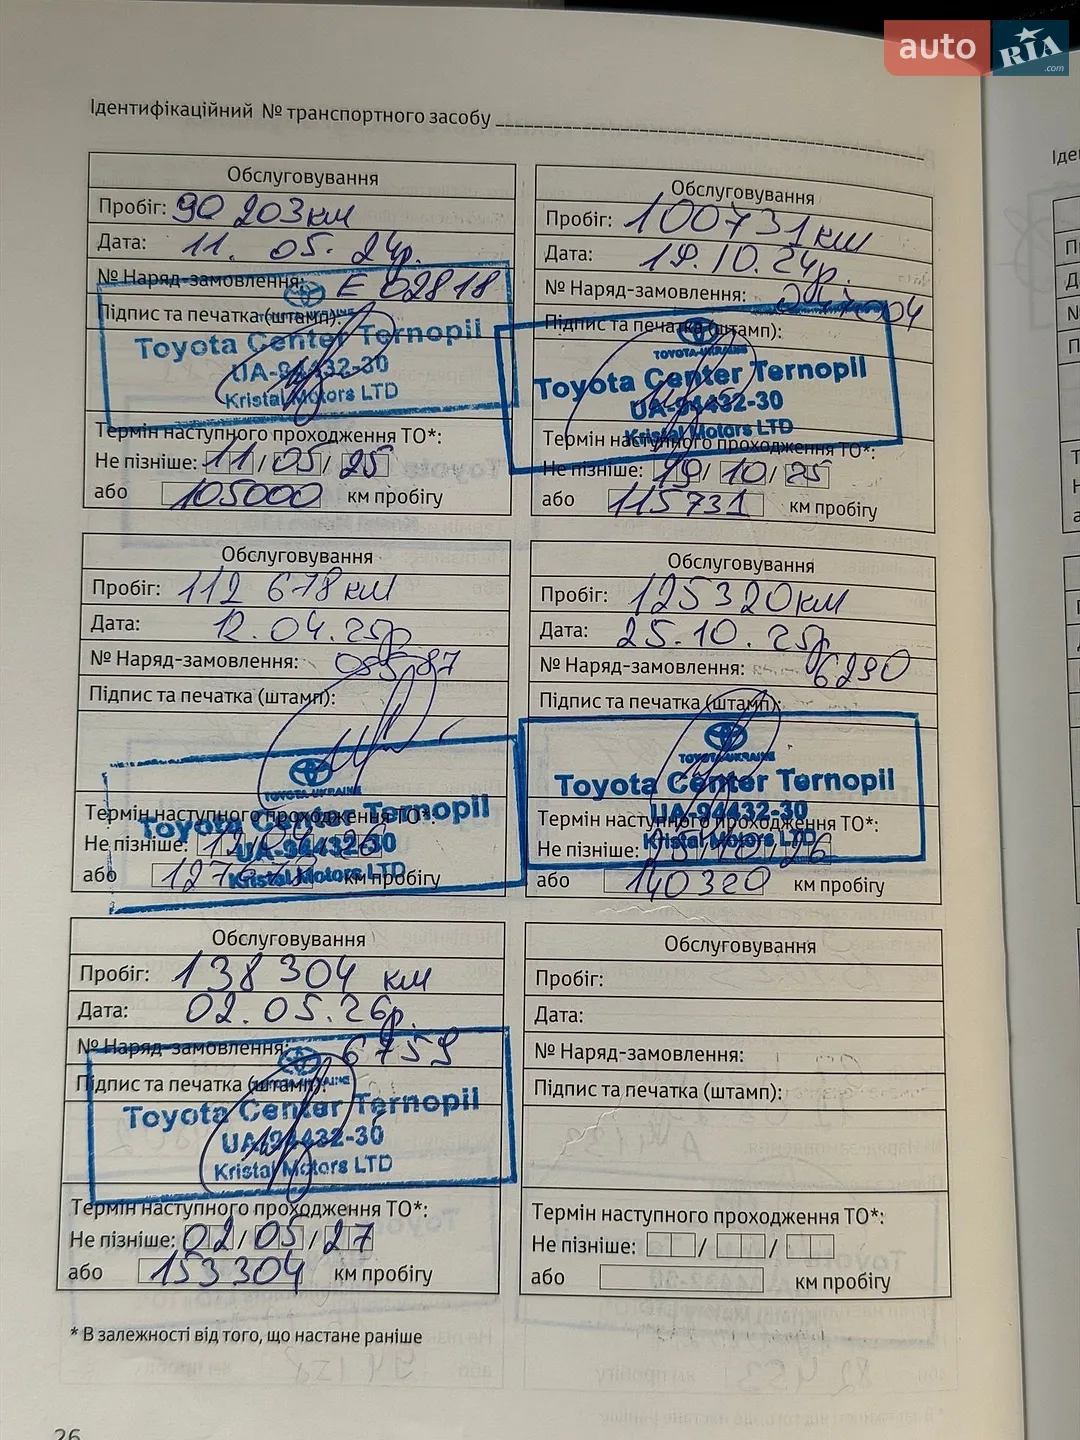 auto RIA .com
Ідентифікаційний № транспортного засобу
Обслуговування
Пробіг: 90 203 км
Дата: 11. 05. 24р.
№ Наряд-замовлення: Е 02818
Підпис та печатка (штамп):
Toyota Center Ternopil
UA-94432-30
Kristal Motors LTD
Термін наступного проходження ТО*:
Не пізніше: 11/05/25
або 105000 км пробігу
Обслуговування
Пробіг: 100731 км
Дата: 19.10.24р.
№ Наряд-замовлення:
Підпис та печатка (штамп):
TOYOTA-UKRAINE
Toyota Center Ternopil
UA-94432-30
Kristal Motors LTD
Термін наступного проходження ТО*:
Не пізніше: 19/10/25
або 115731 км пробігу
Обслуговування
Пробіг: 112 678 км
Дата: 12.04.25р
№ Наряд-замовлення:
Підпис та печатка (штамп):
TOYOTA-UKRAINE
Toyota Center Ternopil
UA-94432-30
Kristal Motors LTD
Термін наступного проходження ТО*:
Не пізніше:
або км пробігу
Обслуговування
Пробіг: 125320 км
Дата: 25.10.25р
№ Наряд-замовлення: 6290
Підпис та печатка (штамп):
TOYOTA-UKRAINE
Toyota Center Ternopil
UA-94432-30
Kristal Motors LTD
Термін наступного проходження ТО*:
Не пізніше: 25/10/26
або 140320 км пробігу
Обслуговування
Пробіг: 138 304 км
Дата: 02.05.26р.
№ Наряд-замовлення: 6759
Підпис та печатка (штамп):
TOYOTA-UKRAINE
Toyota Center Ternopil
UA-94432-30
Kristal Motors LTD
Термін наступного проходження ТО*:
Не пізніше: 02/05/27
або 153304 км пробігу
Обслуговування
Пробіг:
Дата:
№ Наряд-замовлення:
Підпис та печатка (штамп):
Термін наступного проходження ТО*:
Не пізніше: / /
або км пробігу
* В залежності від того, що настане раніше
26